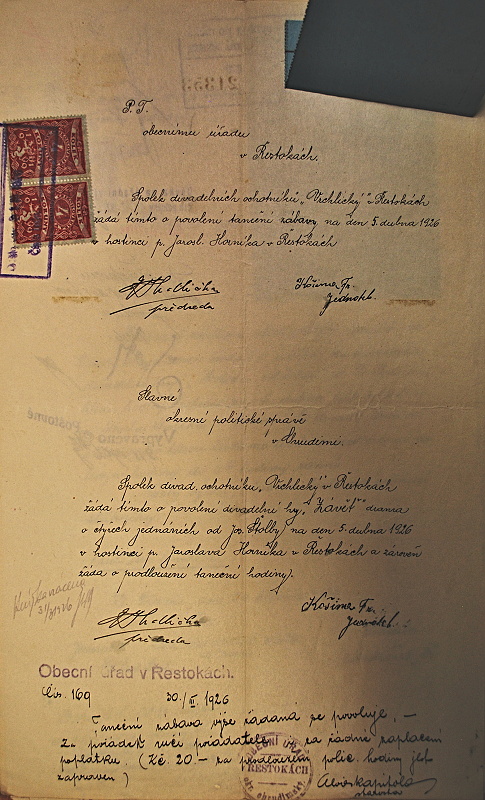 P. T.
obecnímu úřadu
v Řestokách.
Spolek divadelních ochotníků „Vrchlický" v Řestokách
žádá tímto o povolení taneční zábavy, na den 5. dubna 1926
v hostinci p. Jarosl. Horníka v Řestokách
předseda
Košina Fr.
jednatel.
Slavné
okresní politické správě
v Chrudimi.
Spolek divad. ochotníků „Vrchlický" v Řestokách
žádá tímto o povolení divadelní hry, „Závěť" drama
o čtyřech jednáních od Jos. Štolby) na den 5. dubna 1926
v hostinci p. Jaroslava Horníka v Řestokách a zároveň
žádá o prodloužení taneční hodiny).
předseda
Košina Fr.
jednatel.
Obecní úřad v Řestokách.
Čís. 169 30./III. 1926
Taneční zábava výše žádaná se povoluje, —
Za pořádek ručí pořadatelé a za řádné zaplacení
poplatku. (Kč. 20.— za prodloužení polic. hodiny jest
zapraven)
starosta
OBECNÍ ÚŘAD
ŘESTOKÁCH